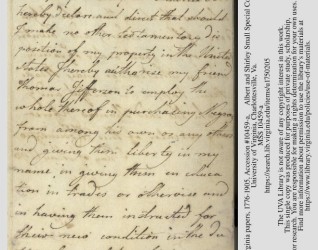 hereby declare and direct that should
I make no other testamentary dis
position of my property in the United
States I hereby authorise my friend
Thomas Jefferson to employ the
whole thereof in purchasing Negroes
from among his own or any others
and giving them liberty in my
name in giving them en education
tion in trades or otherwise and
in having them instructed for
their new condition in the du
ginia papers, 1776-1905, Accession #10459-a, Albert and Shirley Small Special Co
University of Virginia, Charlottesville, Va.
MSS 10459-a
https://search.lib.virginia.edu/items/u1750205
The UVA Library is not aware of any copyright interest in this work.
This single copy was produced for purposes of private study, scholarship,
or research. You are responsible for making a rights determination for your own uses.
Find more information about permission to use the library's materials at
https://www.library.virginia.edu/policies/use-of-materials.